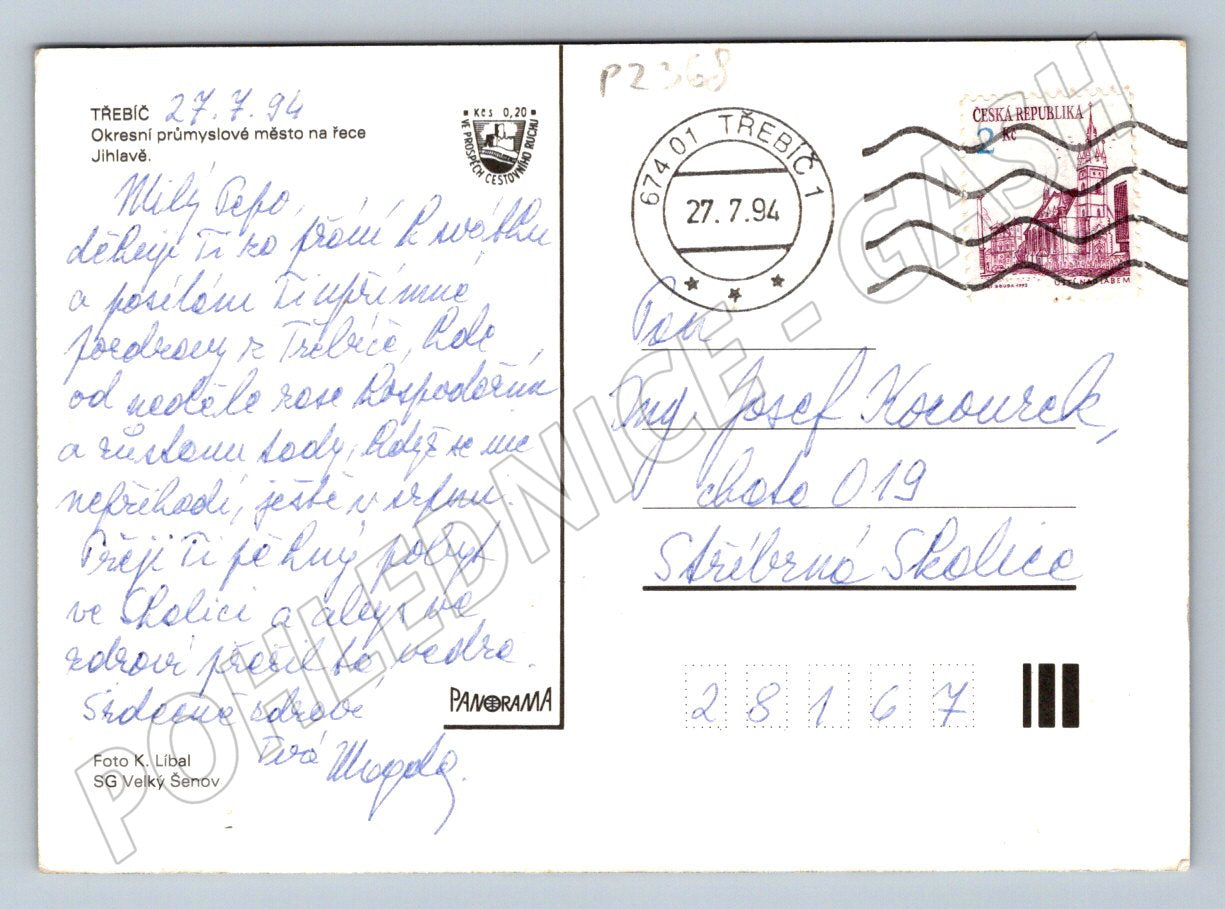 TŘEBÍČ 27.7.94
Okresní průmyslové město na řece
Jihlavě.
Kčs 0,20
VE PROSPĚCH CESTOVNÍHO RUCHU
Milý Pepo,
děkuji Ti za přání k svátku
a posílám Ti upřímné
pozdravy z Třebíče, kde
od neděle zase hospodařím
a zůstanu tady, když se nic
nepřihodí, ještě v srpnu.
Přeji Ti pěkný pobyt
ve Skalici a abys ve
zdraví přežil ta vedra.
Srdečně zdraví
Tvá Magda.
PANORAMA
Foto K. Líbal
SG Velký Šenov
PZ368
674 01 TŘEBÍČ 1
27.7.94
ČESKÁ REPUBLIKA
2 Kč
ÚSTÍ NAD LABEM
Pan
Ing Josef Kocourek,
chata 019
Stříbrná Skalice
28167
POHLEDNICE - GASH